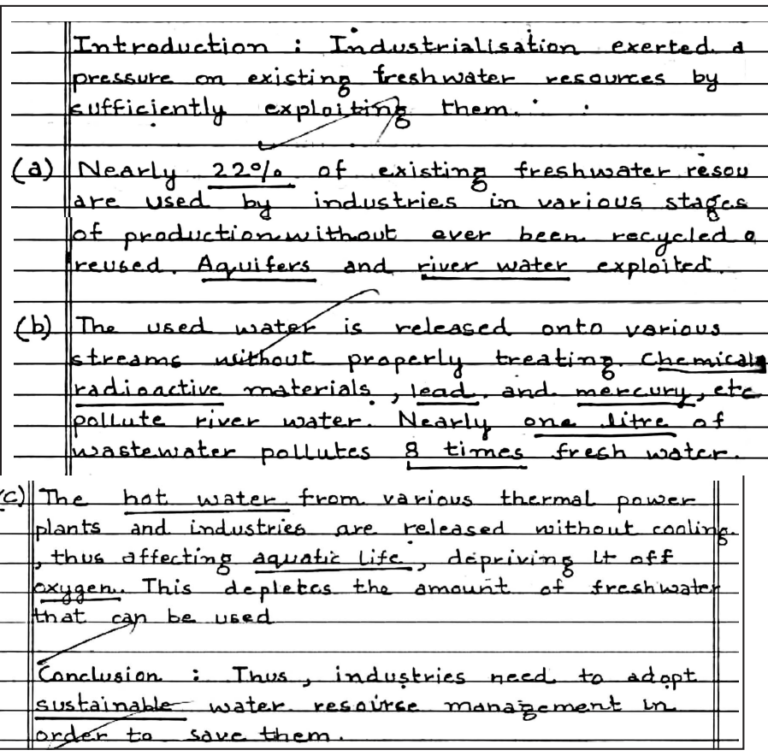 Introduction : Industrialisation exerted a
pressure on existing freshwater resources by
sufficiently exploiting them.
(a) Nearly 22% of existing freshwater resou
are used by industries in various stages
of production without ever been recycled o
reused. Aquifers and river water exploited.
(b) The used water is released onto various
streams without properly treating. Chemicals
radioactive materials, lead, and mercury, etc
pollute river water. Nearly one litre of
wastewater pollutes 8 times fresh water.
(c) The hot water from various thermal power
plants and industries are released without cooling
, thus affecting aquatic life, depriving it off
oxygen. This depletes the amount of freshwater
that can be used
Conclusion : Thus, industries need to adopt
sustainable water resource management in
order to save them.